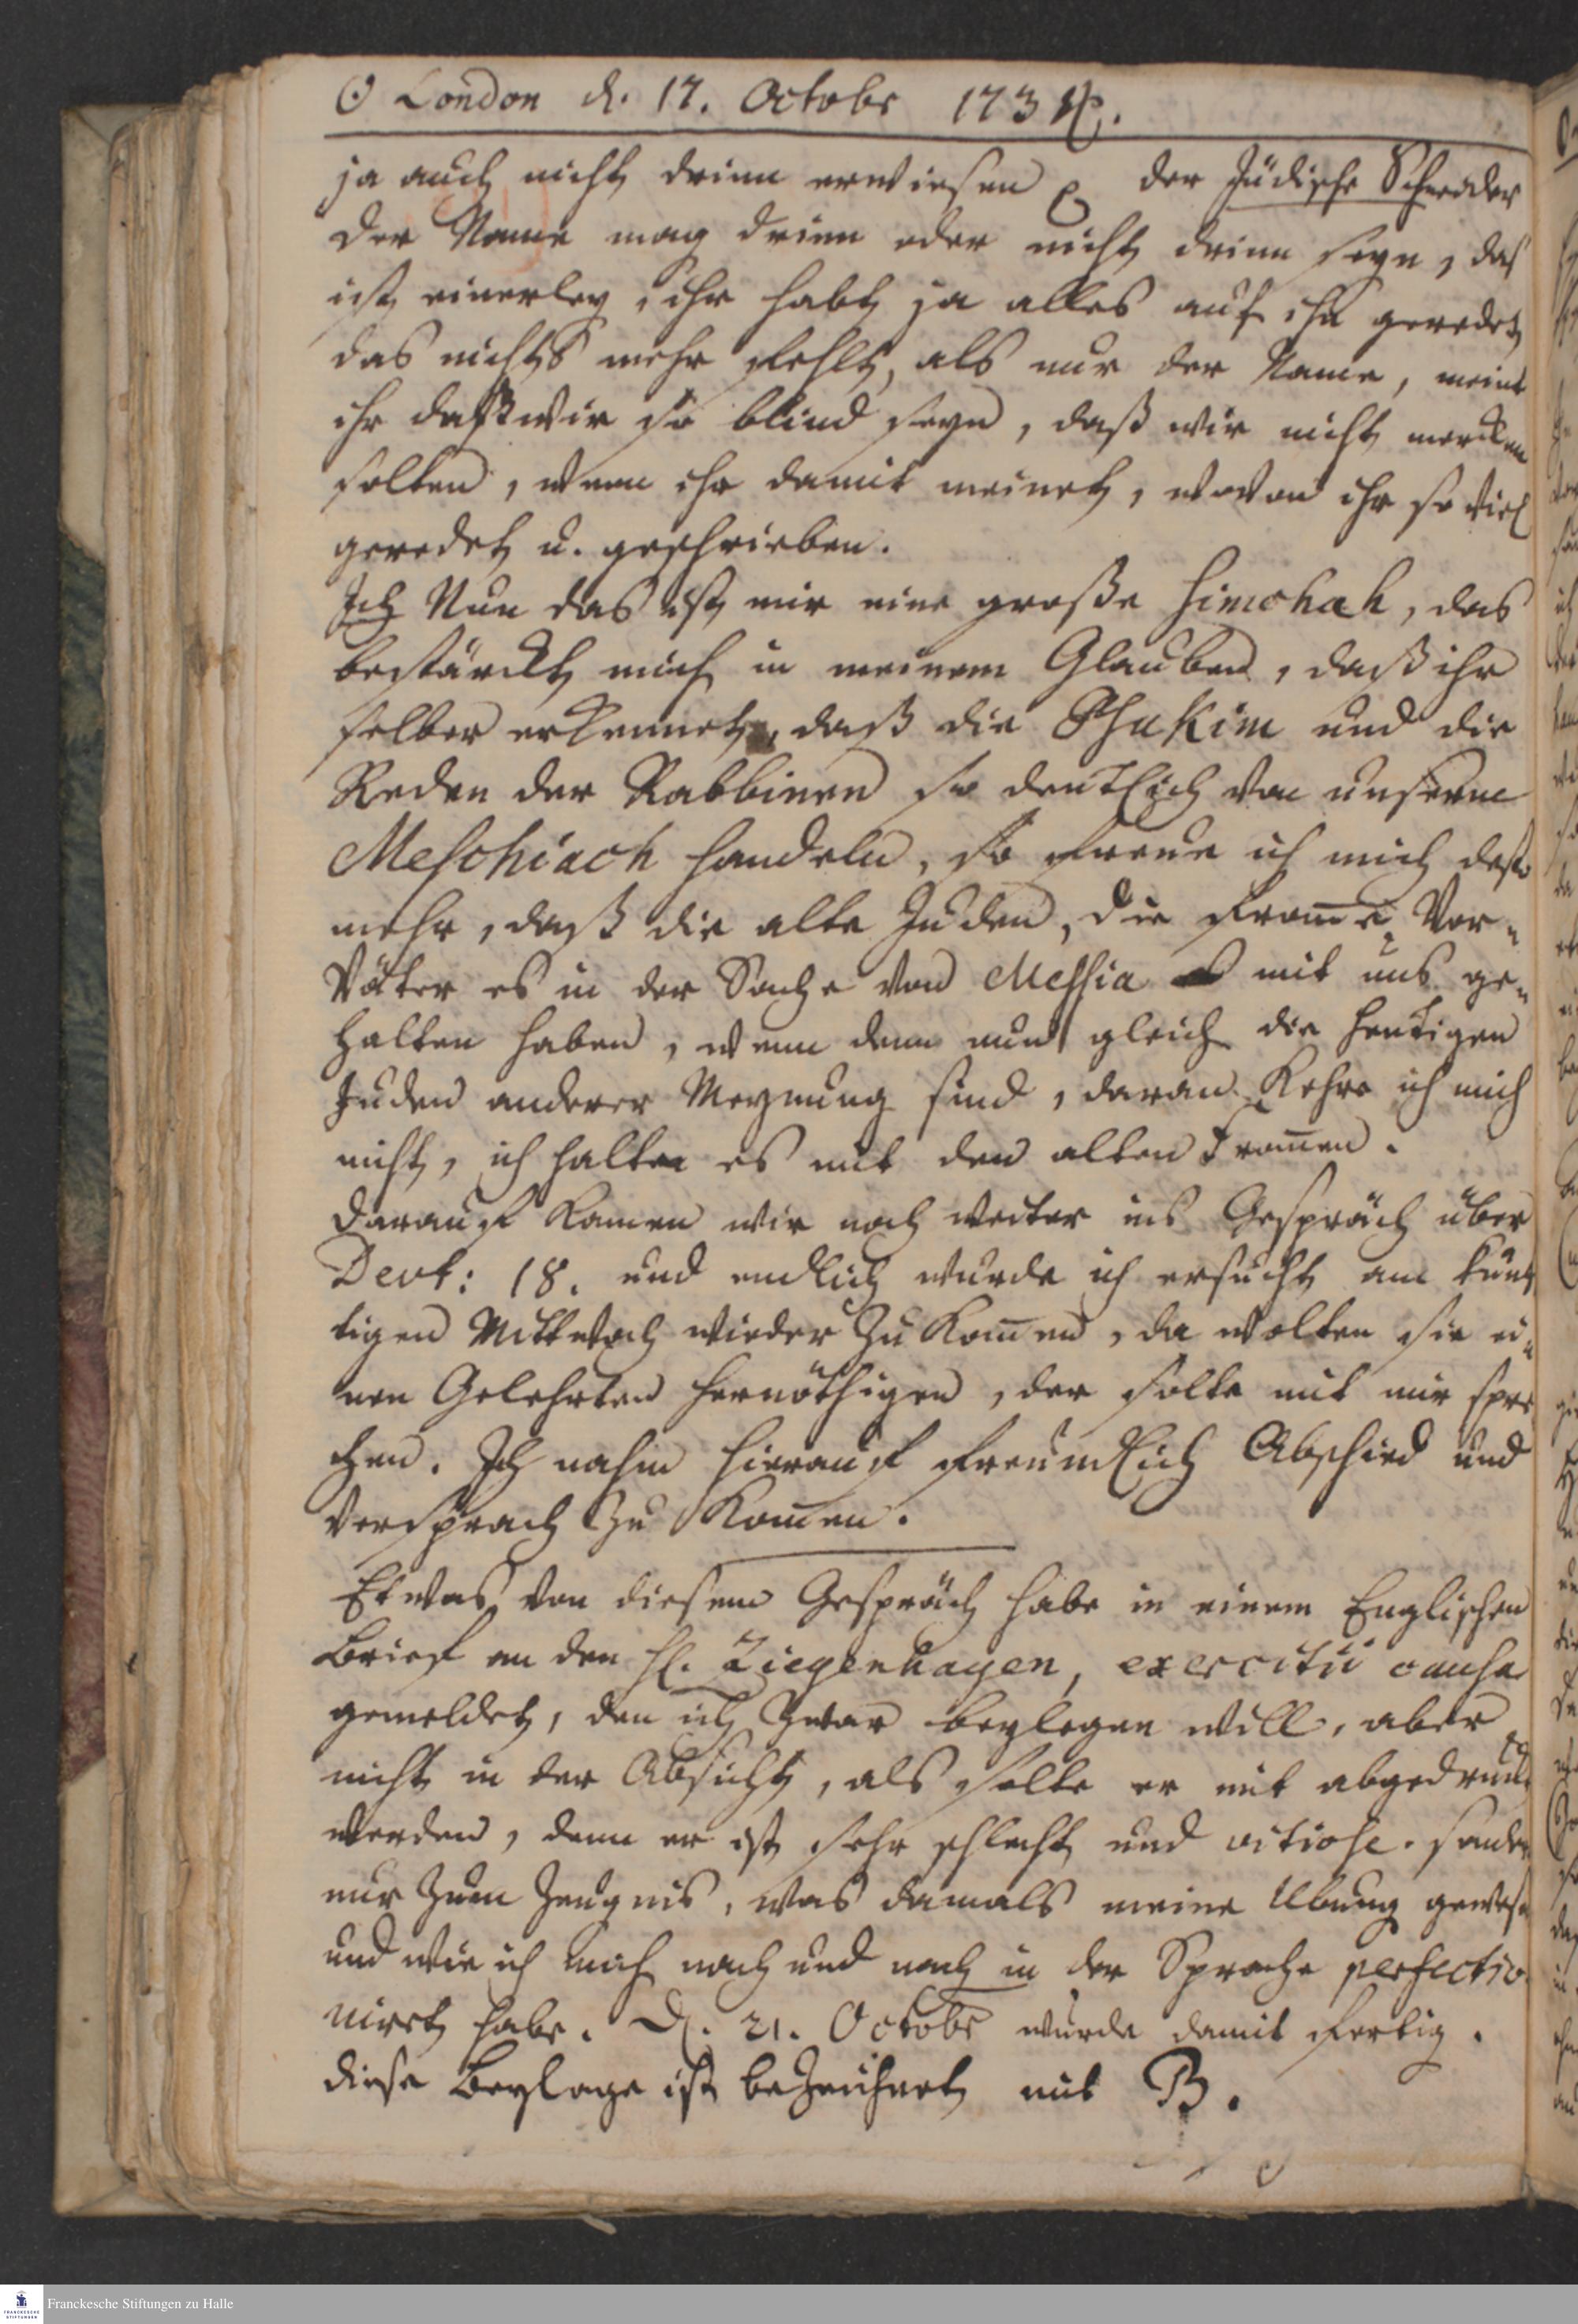 ☉ London d. 17. Octobr 1734.
ja auch nicht drinn erwiesen der Jüdische Schneider
Der Name mag drinn oder nicht drinn seyn, das
ist einerley, ihr habt ja alles auf ihn geredet
das nichts mehr fehlt, als nur der Name, meint
ihr daß wir so blind seyn, daß wir nicht mercken
solten, wenn ihr damit meinet, wovon ihr so viel
geredet u. geschrieben.
Ich Nun das ist mir eine große Simchah, das
bestärckt mich in meinem Glauben, daß ihr
selber erkennet, daß die Psukim und die
Reden der Rabbinen so deutlich von unserm
Meschiach handeln, so freue ich mich desto
mehr, daß die alte Juden, die from̄e Vor-
Väter es in der Sache von Messia mit uns ge-
halten haben, wenn denn nun gleich die heutigen
Juden anderer Meynung sind, daran kehre ich mich
nicht, ich halte es mit den alten From̄en.
Darauf kamen wir noch weiter ins Gespräch über
Devt: 18. und endlich wurde ich ersucht am künf
tigen Mittwoch wieder zu kom̄en, da wolten sie ei-
nen Gelehrten hernöthigen, der solte mit mir spre
chen. Ich nahm hierauf freundlich Abschied und
versprach zu kom̄en.
Etwas von diesem Gespräch habe in einem Englischen
Brief an den H. Ziegenhagen, exercitii causa
gemeldet, den ich zwar beylegen will, aber
nicht in der Absicht, als solte er mit abgedruckt
werden, denn er ist sehr schlecht und vitiose. sondern
nur zum Zeugnis, was damals meine Ubung gewesen
und wie ich mich nach und nach in der Sprache perfectio
nirt habe. D. 21. Octobr wurde damit fertig.
diese Beylage ist bezeichnet mit B.
Franckesche Stiftungen zu Halle